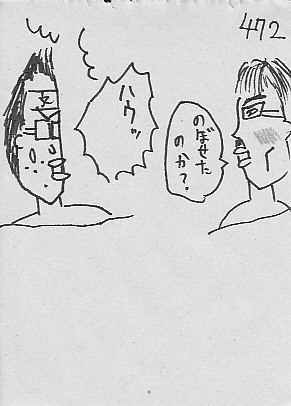 472
のぼせた
のか?
ハウッ